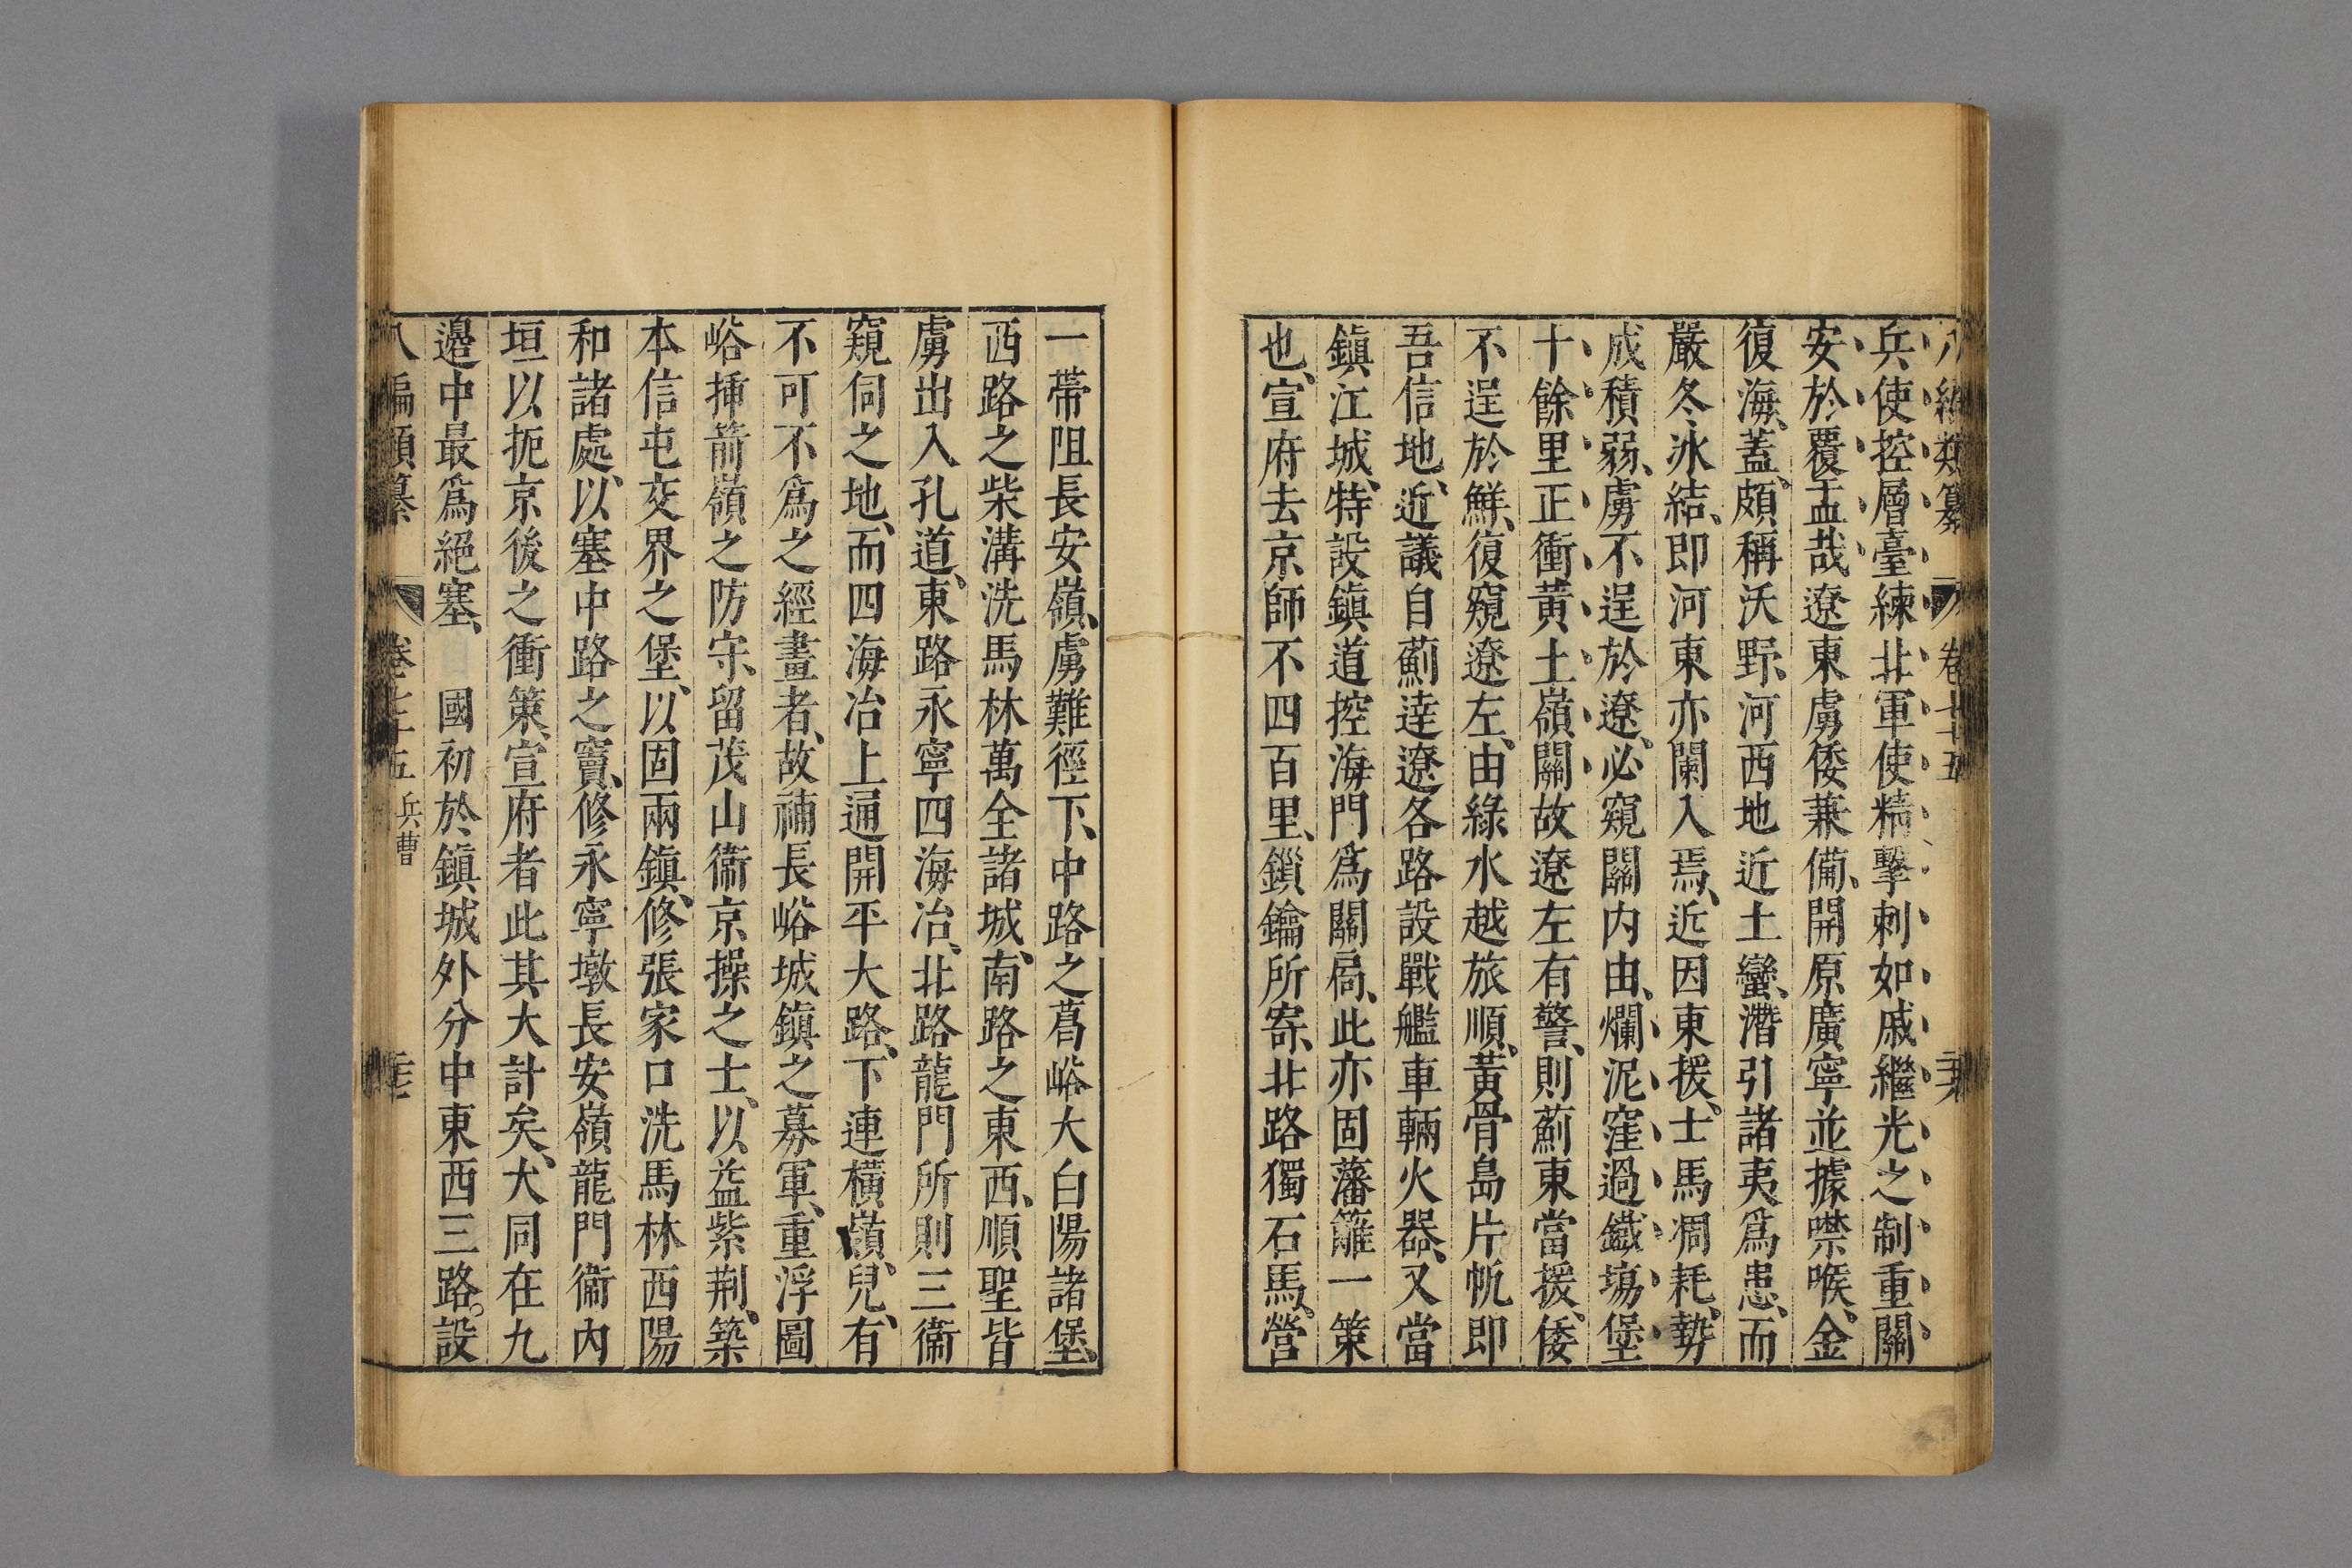 八編類纂 卷七十五
兵使控層臺練北軍使精擊刺如戚繼光之制重關
安於覆盂哉遼東虜倭兼備開原廣寧並據噤喉金
復海蓋頗稱沃野河西地近土蠻潛引諸夷爲患而
嚴冬冰結即河東亦闌入焉近因東援士馬凋耗勢
成積弱虜不逞於遼必窺關内由爛泥窪過鐵塲堡
十餘里正衝黃土嶺關故遼左有警則薊東當援倭
不逞於鮮復窺遼左由綠水越旅順黃骨島片帆即
吾信地近議自薊達遼各路設戰艦車輛火器又當
鎮江城特設鎮道控海門爲關扃此亦固藩籬一策
也宣府去京師不四百里鎖鑰所寄北路獨石馬營
一帶阻長安嶺虜難徑下中路之葛峪大白陽諸堡
西路之柴溝洗馬林萬全諸城南路之東西順聖皆
虜出入孔道東路永寧四海冶北路龍門所則三衞
窺伺之地而四海冶上通開平大路下連橫嶺兒有
不可不爲之經畫者故補長峪城鎮之募軍重浮圖
峪挿箭嶺之防守留茂山衞京操之士以益紫荆築
本信屯交界之堡以固兩鎮修張家口洗馬林西陽
和諸處以塞中路之竇修永寧墩長安嶺龍門衞内
垣以扼京後之衝策宣府者此其大計矣大同在九
邊中最爲絕塞 國初於鎮城外分中東西三路。設
八編類纂 卷七十五 兵曹